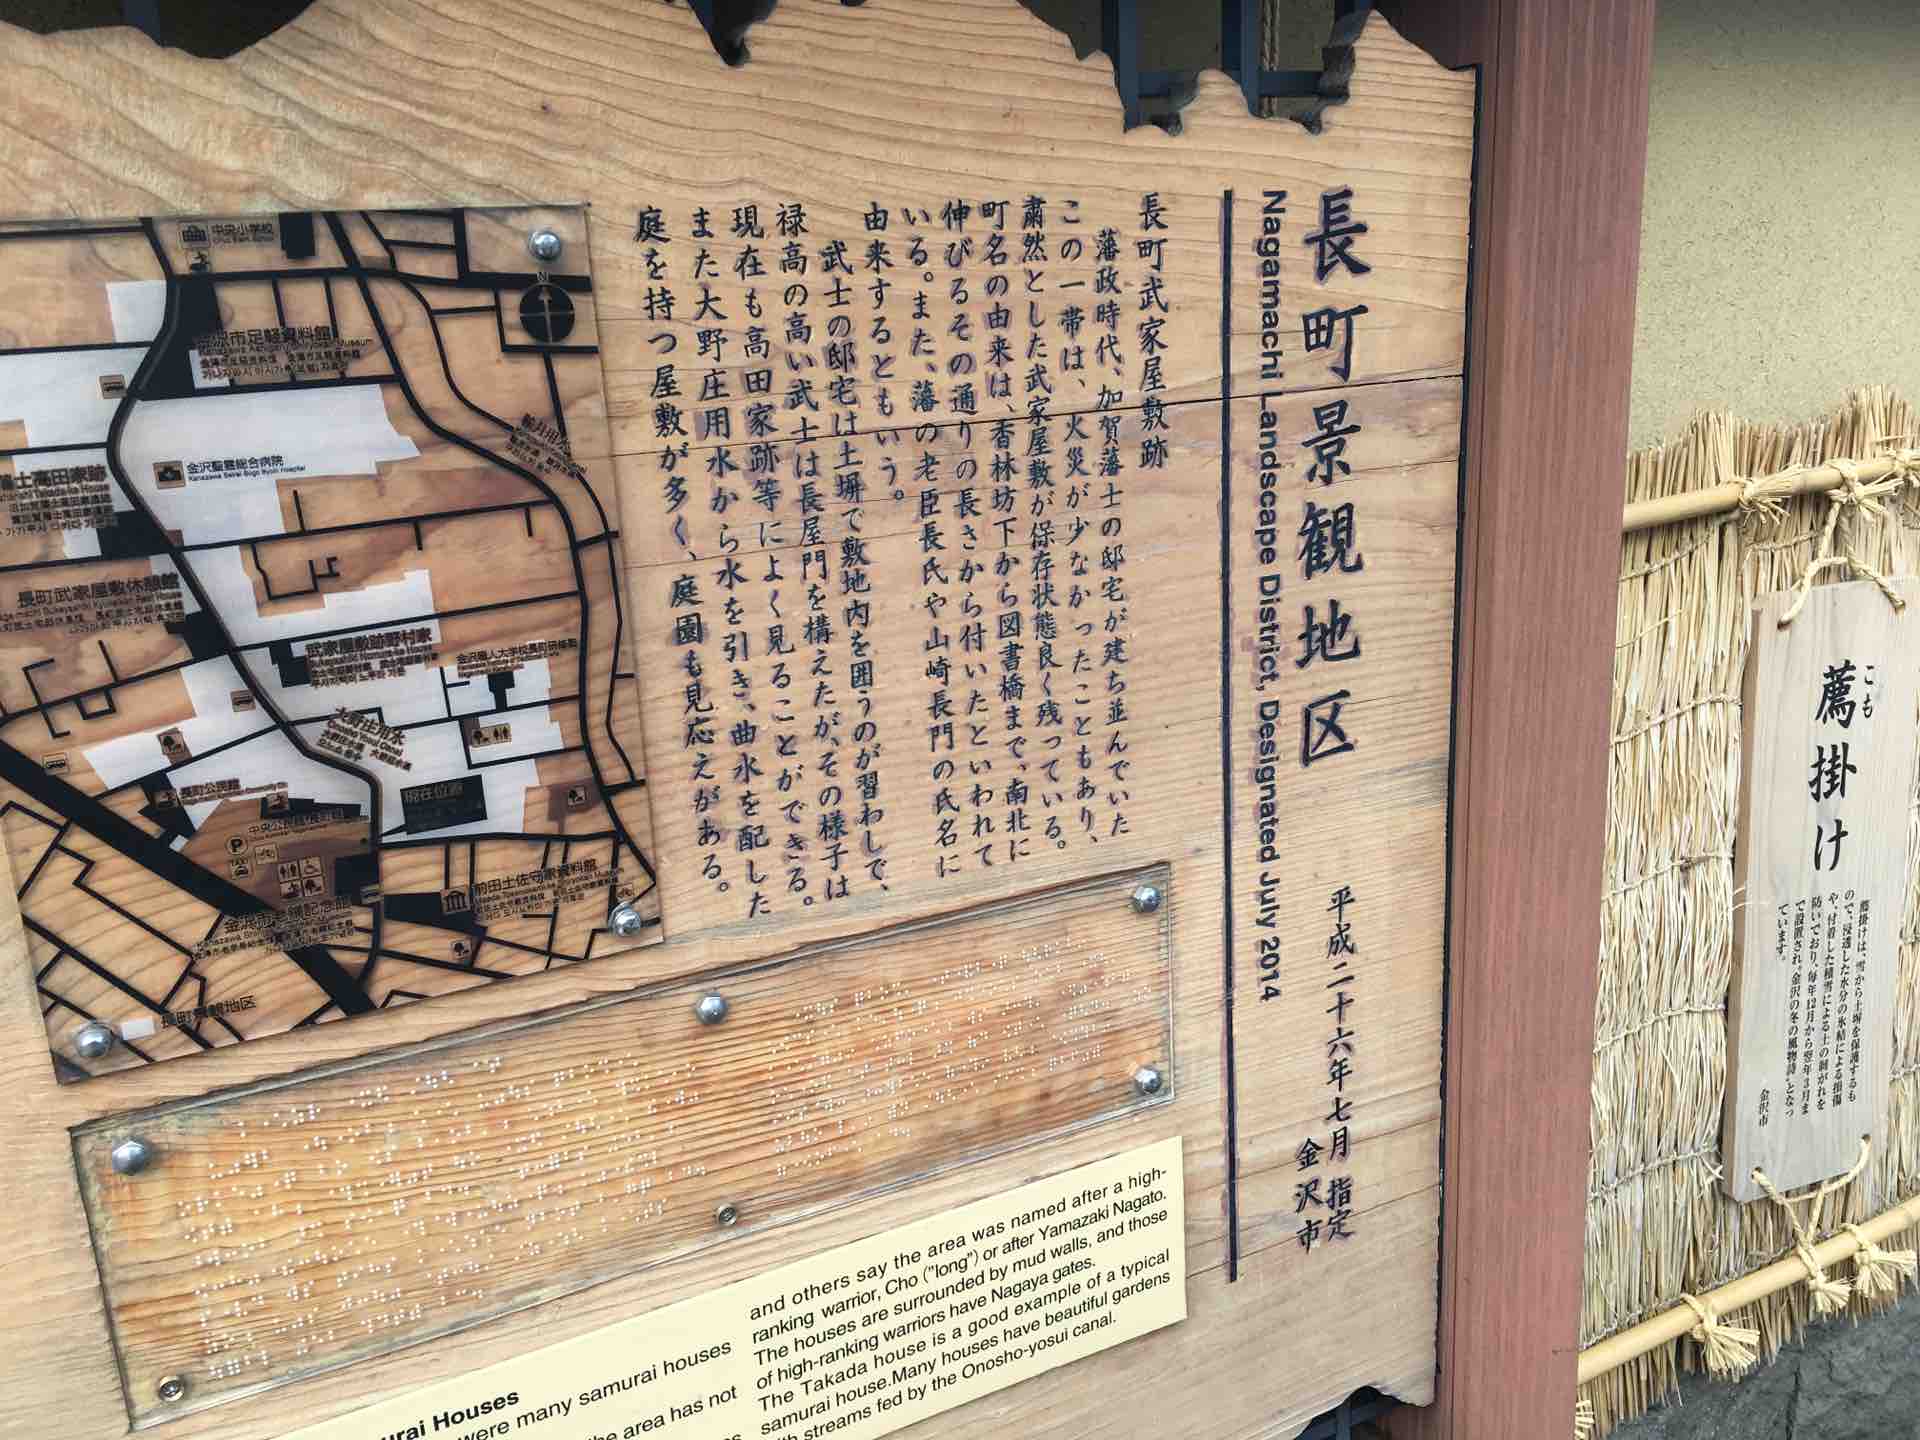 長町景観地区
Nagamachi Landscape District, Designated July 2014
平成二十六年七月 指定
金沢市
長町武家屋敷跡
藩政時代、加賀藩士の邸宅が建ち並んでいた
この一帯は、火災が少なかったこともあり、
粛然とした武家屋敷が保存状態良く残っている。
町名の由来は、香林坊下から図書橋まで、南北に
伸びるその通りの長さから付いたといわれて
いる。また、藩の老臣長氏や山崎長門の氏名に
由来するともいう。
武士の邸宅は土塀で敷地内を囲うのが習わしで、
禄高の高い武士は長屋門を構えたが、その様子は
現在も高田家跡等によく見ることができる。
また大野庄用水から水を引き、曲水を配した
庭を持つ屋敷が多く、庭園も見応えがある。
中央小学校
N
金沢市足軽資料館
金沢聖霊総合病院
Kanazawa Seirei Sogo Byoin Hospital
藩士高田家跡
長町武家屋敷休憩館
武家屋敷跡野村家
金沢職人大学校長町研修塾
大野庄用水
長町公民館
現在位置
P
TAXI
前田土佐守家資料館
金沢市老舗記念館
長町景観地区
urai Houses
were many samurai houses
the area has not
and others say the area was named after a high-
ranking warrior, Cho ("long") or after Yamazaki Nagato.
The houses are surrounded by mud walls, and those
of high-ranking warriors have Nagaya gates.
The Takada house is a good example of a typical
samurai house.Many houses have beautiful gardens
streams fed by the Onosho-yosui canal.
こも
薦掛け
薦掛けは、雪から土塀を保護するも
ので、浸透した水分の氷結による損傷
や、付着した積雪による土の剥がれを
防いでおり、毎年12月から翌年3月ま
で設置され、金沢の冬の風物詩となっ
ています。
金沢市